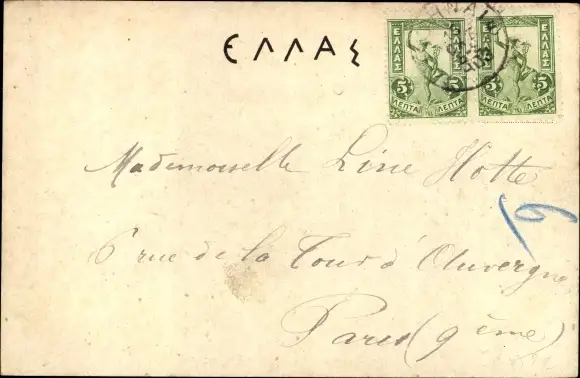 ΕΛΛΑΣ
ΕΛΛΑΣ ΕΛΛΑΣ
5 5 5 5
ΛΕΠΤΑ ΛΕΠΤΑ
Mademoiselle Line Hotte
6 rue de la Tour d'Auvergne
Paris (9ème)
9